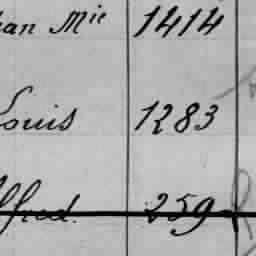 an Mie 1414
Louis 1283
lfred. 259